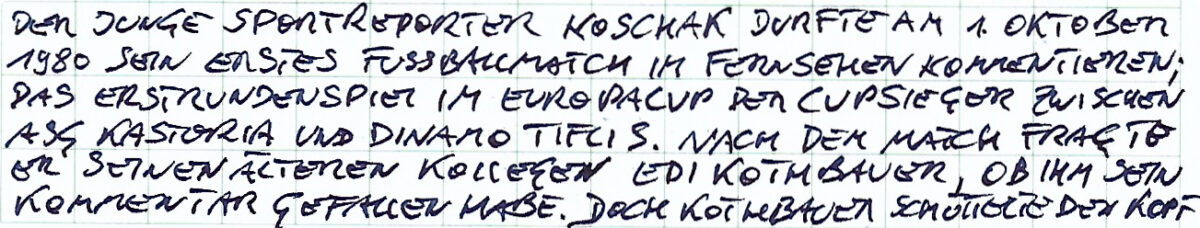 DER JUNGE SPORTREPORTER KOSCHAK DURFTE AM 1. OKTOBER
1980 SEIN ERSTES FUSSBALLMATCH IM FERNSEHEN KOMMENTIEREN;
DAS ERSTRUNDENSPIEL IM EUROPACUP DER CUPSIEGER ZWISCHEN
ASG KASTORIA UND DINAMO TIFLIS. NACH DEM MATCH FRAGTE
ER SEINEN ÄLTEREN KOLLEGEN EDI KOTHBAUER, OB IHM SEIN
KOMMENTAR GEFALLEN HABE. DOCH KOTHBAUER SCHÜTTELTE DEN KOPF